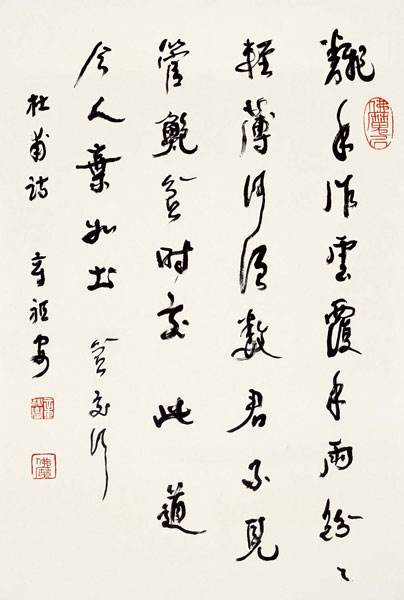 飜手作雲覆手雨紛〻
輕薄何須數君不見
管鮑貧時交此道
今人棄如土 貧交行
杜甫詩 章祖安